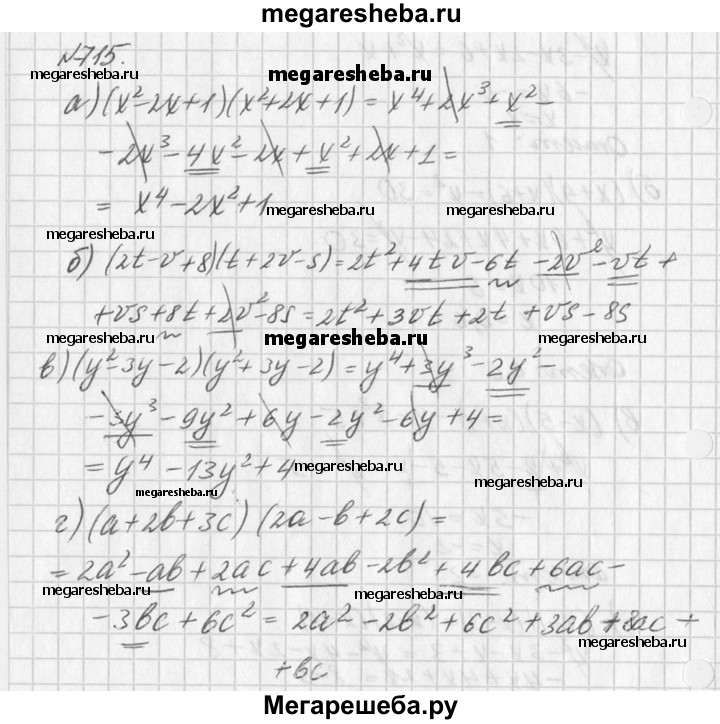 megaresheba.ru
№715.
megaresheba.ru megaresheba.ru megaresheba.ru
а) (x²-2x+1)(x²+2x+1) = x⁴+2x³+x²-
-2x³-4x²-2x+x²+2x+1=
= x⁴-2x²+1
megaresheba.ru megaresheba.ru
megaresheba.ru
б) (2t-v+8)(t+2v-s)=2t²+4tv-6t-2v²-vt+
+vs+8t+2v²-8s=2t²+3vt+2t+vs-8s
megaresheba.ru megaresheba.ru
в) (y²-3y-2)(y²+3y-2)=y⁴+3y³-2y²-
-3y³-9y²+6y-2y²-6y+4=
= y⁴-13y²+4
megaresheba.ru megaresheba.ru
megaresheba.ru
г) (a+2b+3c)(2a-b+2c)=
=2a²-ab+2ac+4ab-2b²+4bc+6ac-
megaresheba.ru megaresheba.ru
-3bc+6c²=2a²-2b²+6c²+3ab+8ac+
megaresheba.ru megaresheba.ru
+bc
Мегарешеба.ру